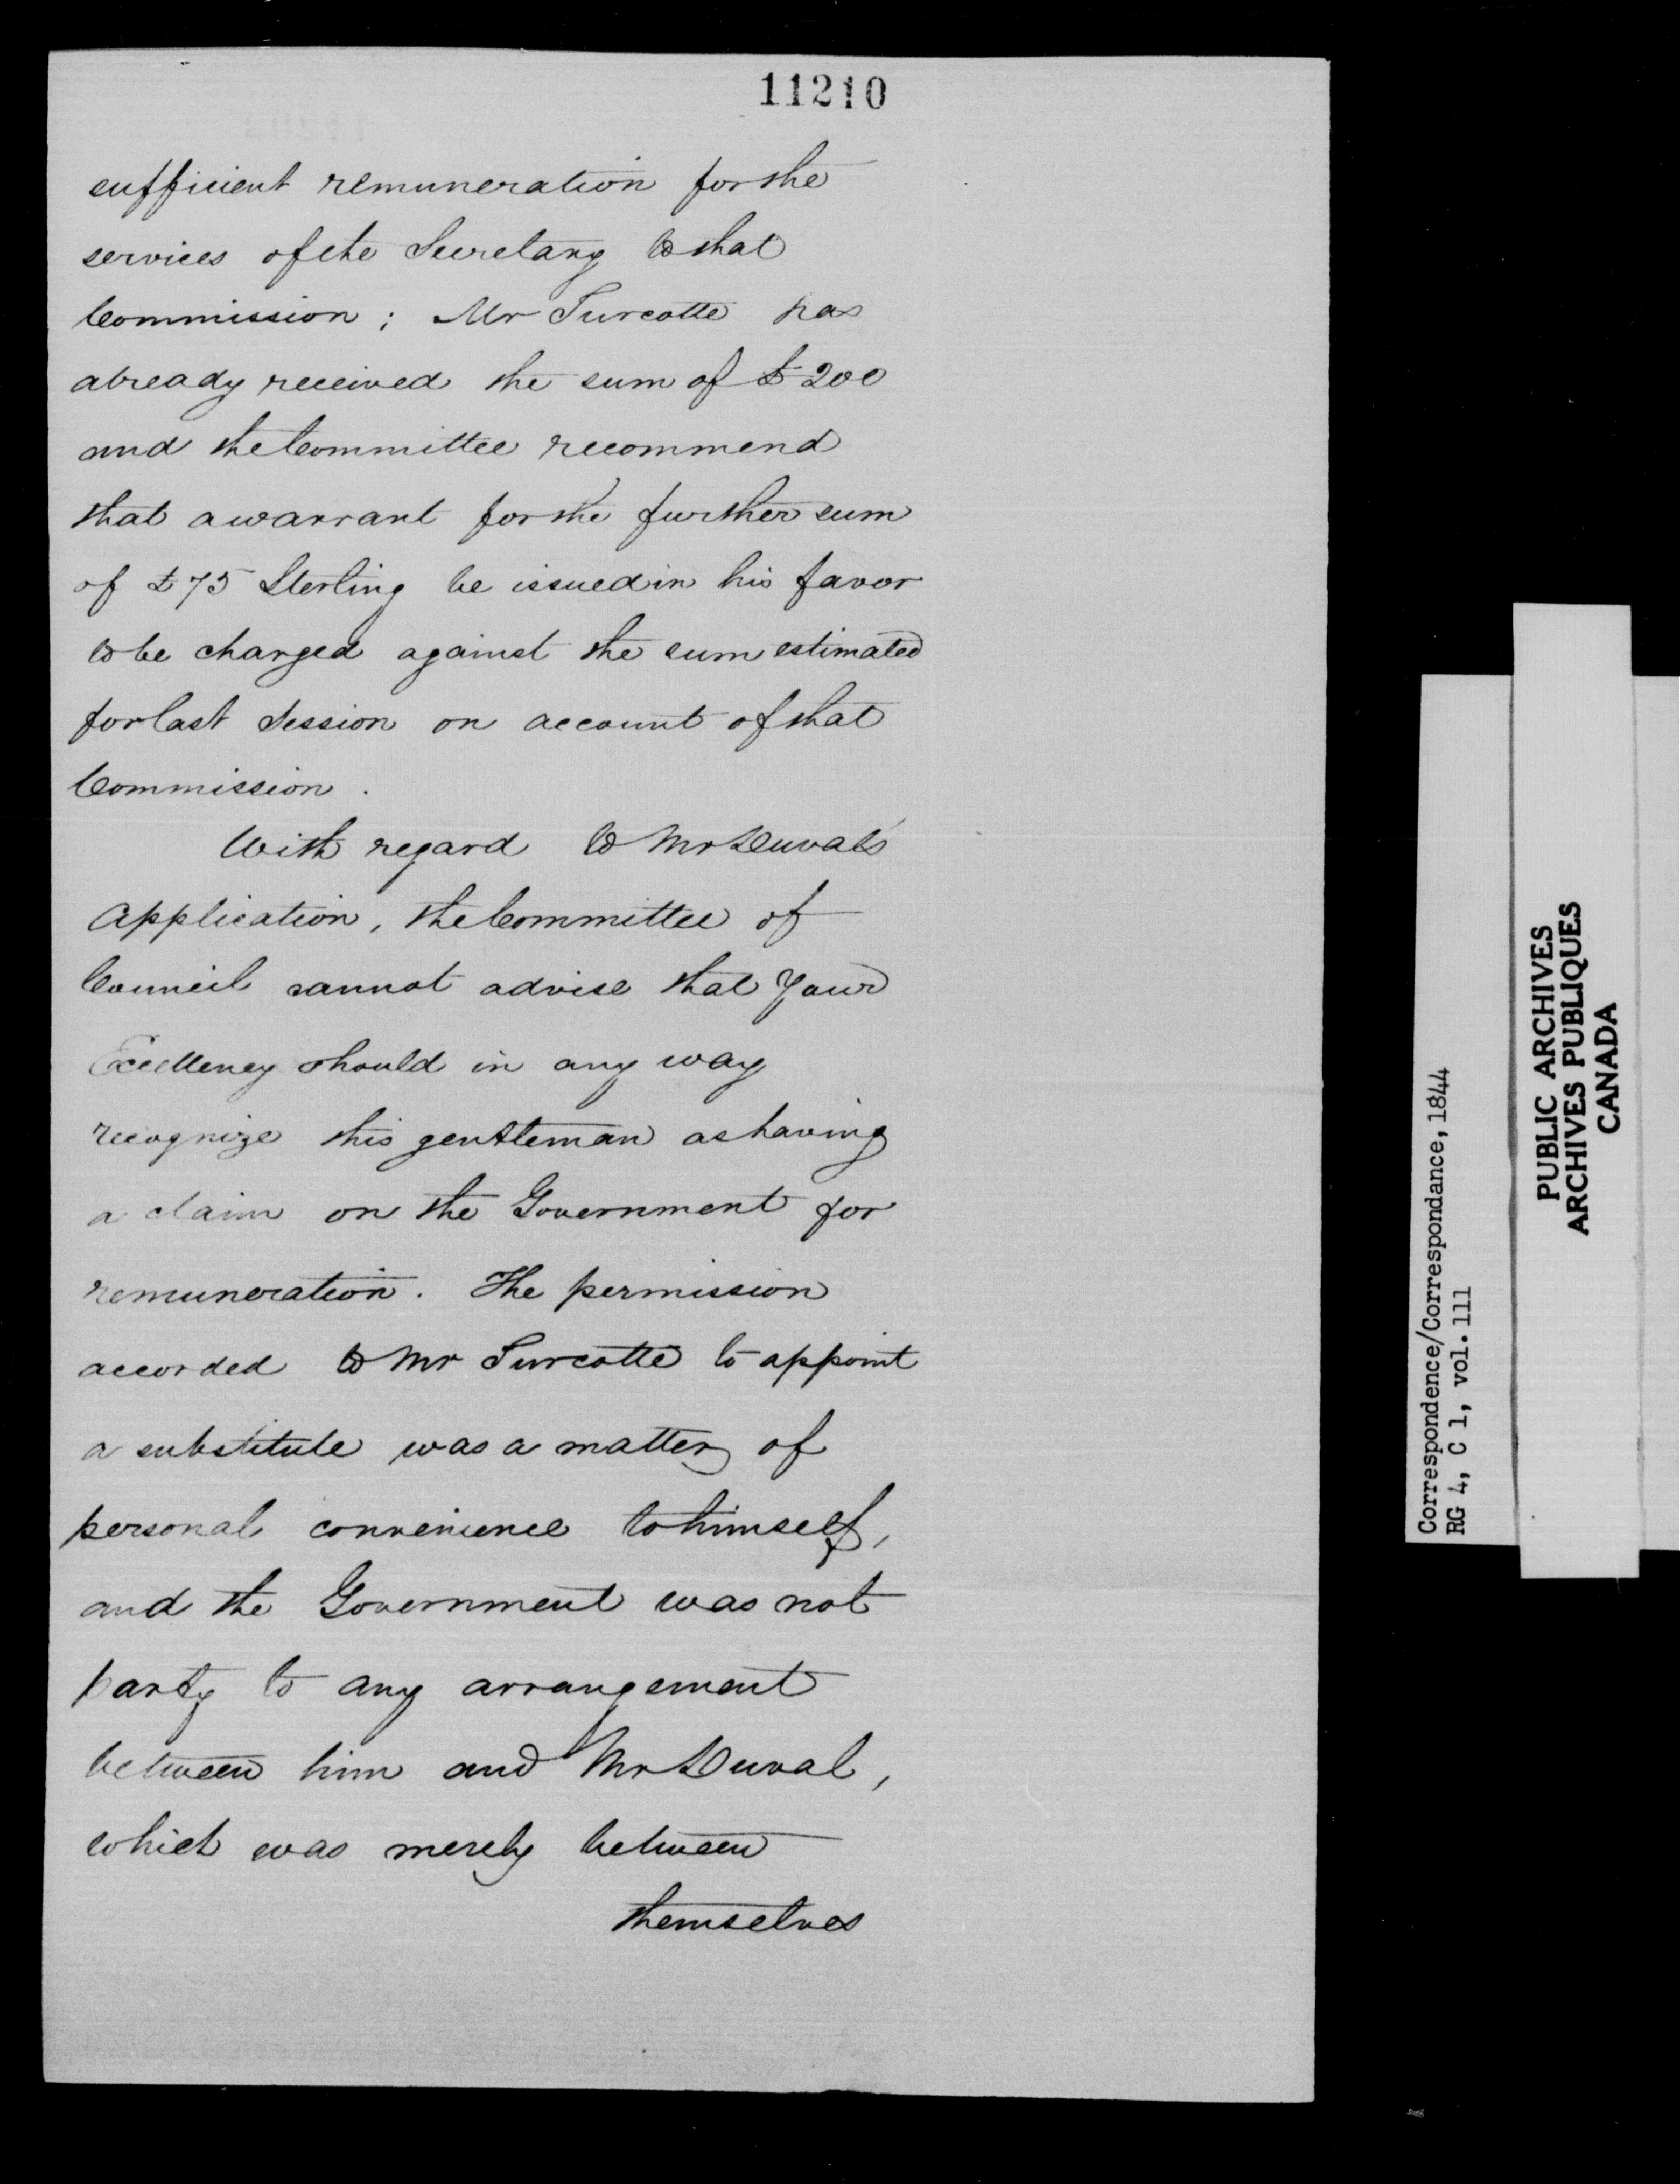 11210
sufficient remuneration for the
services of the Secretary to that
Commission; Mr Turcotte has
already received the sum of £200
and the Committee recommend
that a warrant for the further sum
of £75 Sterling be issued in his favor
to be charged against the sum estimated
for last Session on account of that
Commission.
With regard to Mr Duval's
Application, the Committee of
Council cannot advise that Your
Excellency should in any way
recognize this gentleman as having
a claim on the Government for
remuneration. The permission
accorded to Mr Turcotte to appoint
a substitute was a matter of
personal convenience to himself,
and the Government was not
party to any arrangement
between him and Mr Duval,
which was merely between
themselves
Correspondence/Correspondance, 1844
RG 4, C 1, vol. 111
PUBLIC ARCHIVES
ARCHIVES PUBLIQUES
CANADA